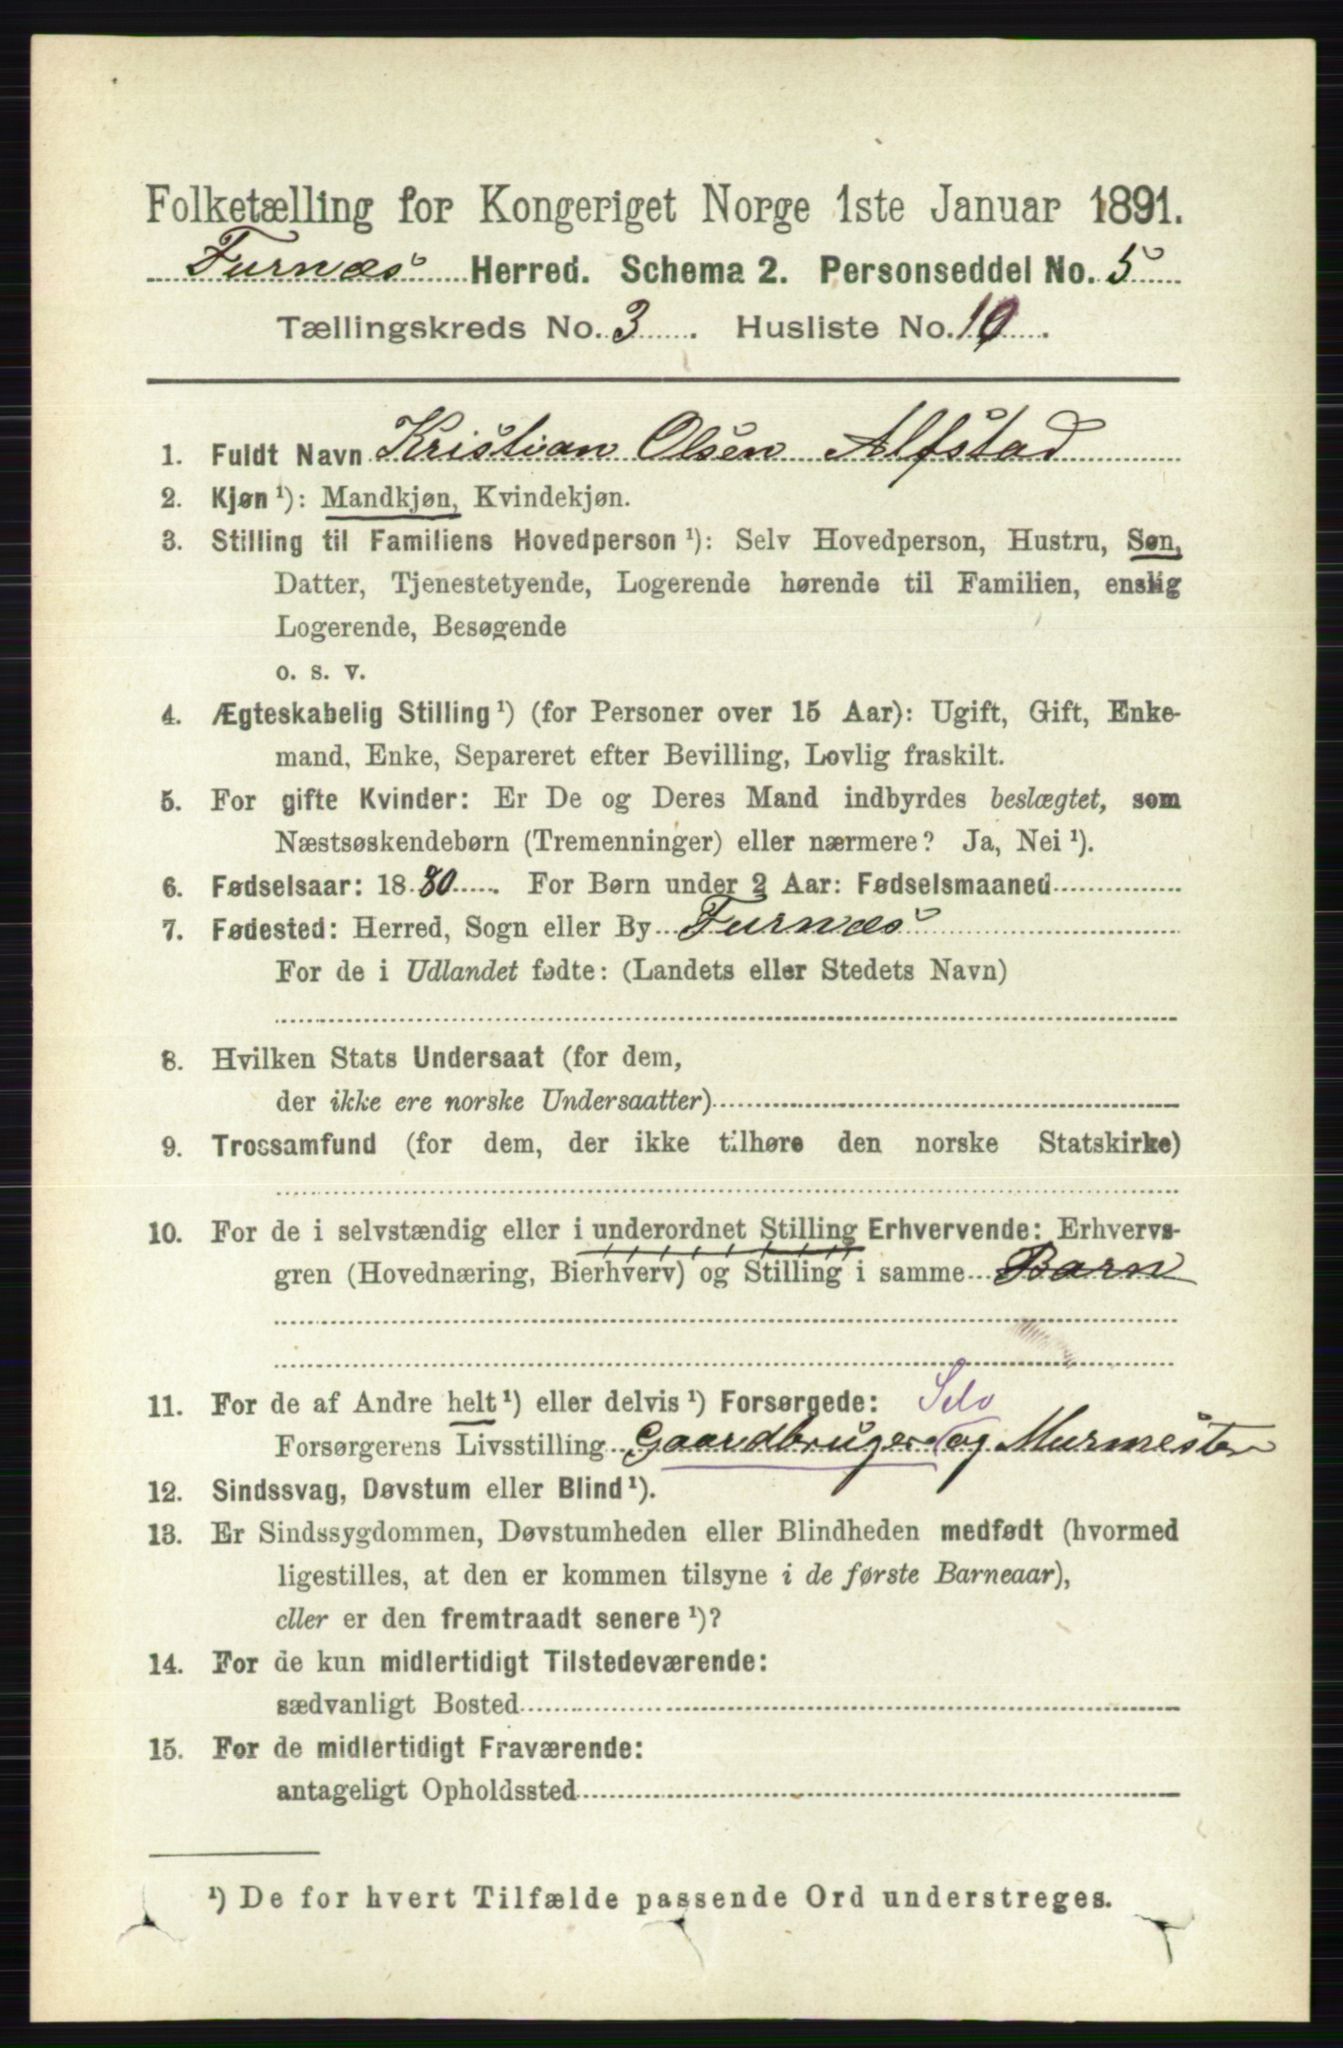 Folketælling for Kongeriget Norge 1ste Januar 1891.
Furnæs Herred. Schema 2. Personseddel No. 5
Tællingskreds No. 3. Husliste No. 10.
1. Fuldt Navn Kristian Olsen Alfstad
2. Kjøn ¹): Mandkjøn, Kvindekjøn.
3. Stilling til Familiens Hovedperson ¹): Selv Hovedperson, Hustru, Søn,
Datter, Tjenestetyende, Logerende hørende til Familien, enslig
Logerende, Besøgende
o. s. v.
4. Ægteskabelig Stilling ¹) (for Personer over 15 Aar): Ugift, Gift, Enke-
mand, Enke, Separeret efter Bevilling, Lovlig fraskilt.
5. For gifte Kvinder: Er De og Deres Mand indbyrdes beslægtet, som
Næstsøskendebørn (Tremenninger) eller nærmere? Ja, Nei ¹).
6. Fødselsaar: 1880. For Børn under 2 Aar: Fødselsmaaned
7. Fødested: Herred, Sogn eller By Furnæs
For de i Udlandet fødte: (Landets eller Stedets Navn)
8. Hvilken Stats Undersaat (for dem,
der ikke ere norske Undersaatter)
9. Trossamfund (for dem, der ikke tilhøre den norske Statskirke)
10. For de i selvstændig eller i underordnet Stilling Erhvervende: Erhvervs-
gren (Hovednæring, Bierhverv) og Stilling i samme Barn
11. For de af Andre helt ¹) eller delvis ¹) Forsørgede: Selv
Forsørgerens Livsstilling Gaardbruger og Murmester
12. Sindssvag, Døvstum eller Blind ¹).
13. Er Sindssygdommen, Døvstumheden eller Blindheden medfødt (hvormed
ligestilles, at den er kommen tilsyne i de første Barneaar),
eller er den fremtraadt senere ¹)?
14. For de kun midlertidigt Tilstedeværende:
sædvanligt Bosted
15. For de midlertidigt Fraværende:
antageligt Opholdssted
¹) De for hvert Tilfælde passende Ord understreges.